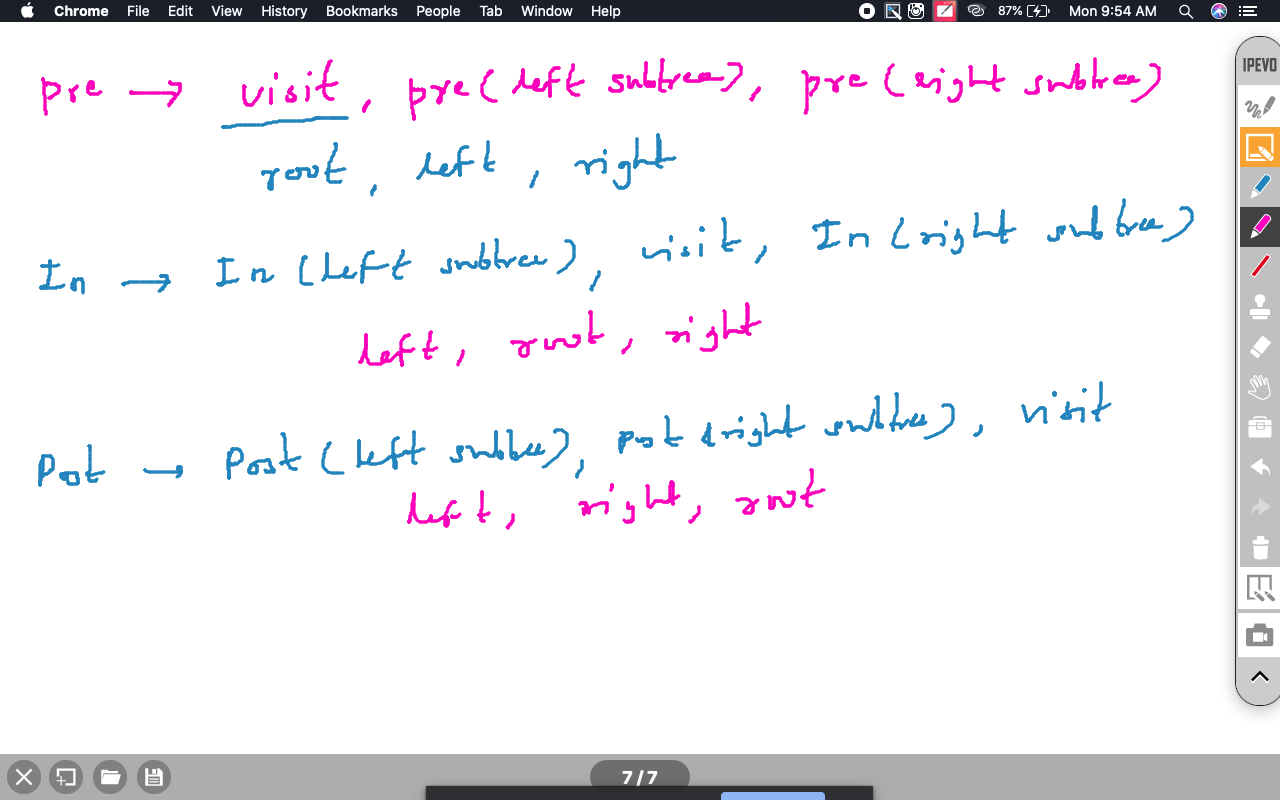 Chrome File Edit View History Bookmarks People Tab Window Help 87% Mon 9:54 AM
IPEVO
pre → visit, pre(left subtree), pre(right subtree)
root, left, right
In → In(left subtree), visit, In(right subtree)
left, root, right
Post → Post(left subtree), post(right subtree), visit
left, right, root
7/7